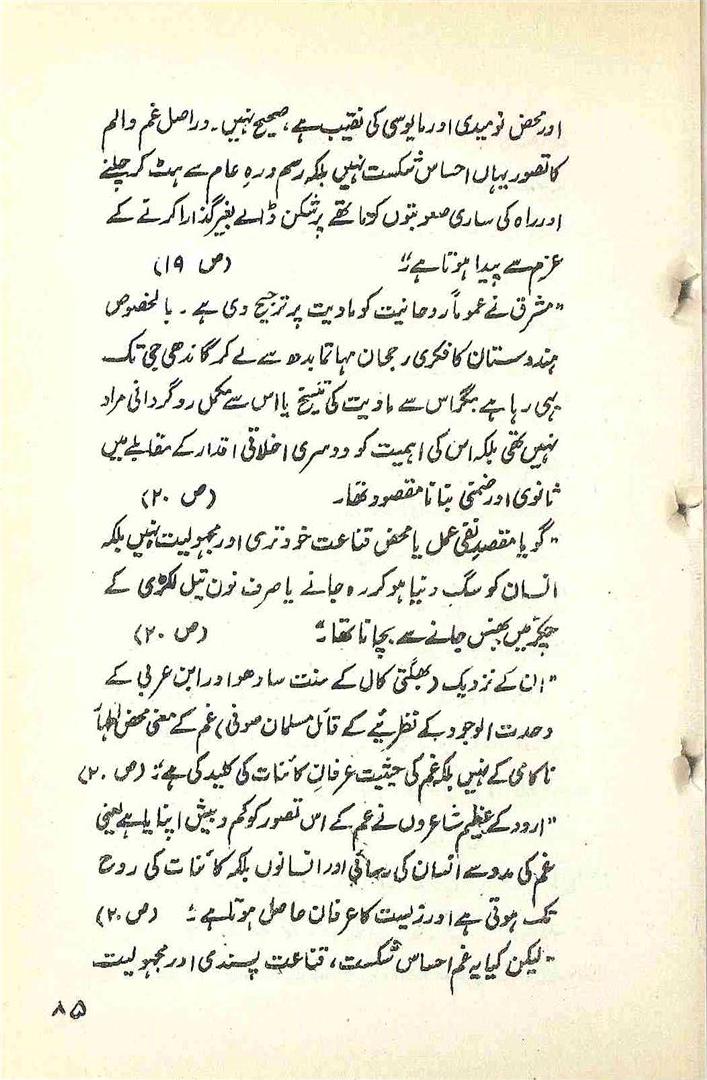 اور محض نومیدی اور مایوسی کی نقیب ہے، صحیح نہیں۔ دراصل غم و الم
کا تصور یہاں احساس شکست نہیں بلکہ رسم و رہِ عام سے ہٹ کر چلنے
اور راہ کی ساری صعوبتوں کو ماتھے پر شکن ڈالے بغیر گذارا کرنے کے
عزم سے پیدا ہوتا ہے:" (ص ۱۹)
"مشرق نے عموماً روحانیت کو مادیت پر ترجیح دی ہے۔ بالخصوص
ہندوستان کا فکری رجحان مہاتما بدھ سے لے کر گاندھی جی تک
یہی رہا ہے مگر اس سے مادیت کی تنسیخ یا اس سے مکمل روگردانی مراد
نہیں تھی بلکہ اس کی اہمیت کو دوسری اخلاقی اقدار کے مقابلے میں
ثانوی اور ضمنی بتانا مقصود تھا۔ (ص ۲۰)
"گویا مقصد نفی عمل یا محض قناعت خود تری اور مجہولیت نہیں بلکہ
انسان کو سگِ دنیا ہو کر رہ جانے یا صرف نون تیل لکڑی کے
چکر میں پھنس جانے سے بچانا تھا:" (ص ۲۰)
"ان کے نزدیک (بھگتی کال کے سنت سادھو اور ابن عربی کے
وحدت الوجود کے نظریئے کے قائل مسلمان صوفی) غم کے معنی محض اظہارِ
ناکامی کے نہیں بلکہ غم کی حیثیت عرفانِ کائنات کی کلید کی ہے:" (ص ۲۰)
"اردو کے عظیم شاعروں نے غم کے اس تصور کو کم و بیش اپنایا ہے یعنی
غم کی مدد سے انسان کی رسائی اور انسانوں بلکہ کائنات کی روح
تک ہوتی ہے اور زیست کا عرفان حاصل ہوتا ہے:" (ص ۲۰)
"لیکن کیا یہ غم احساس شکست، قناعت پسندی اور مجہولیت
۸۵